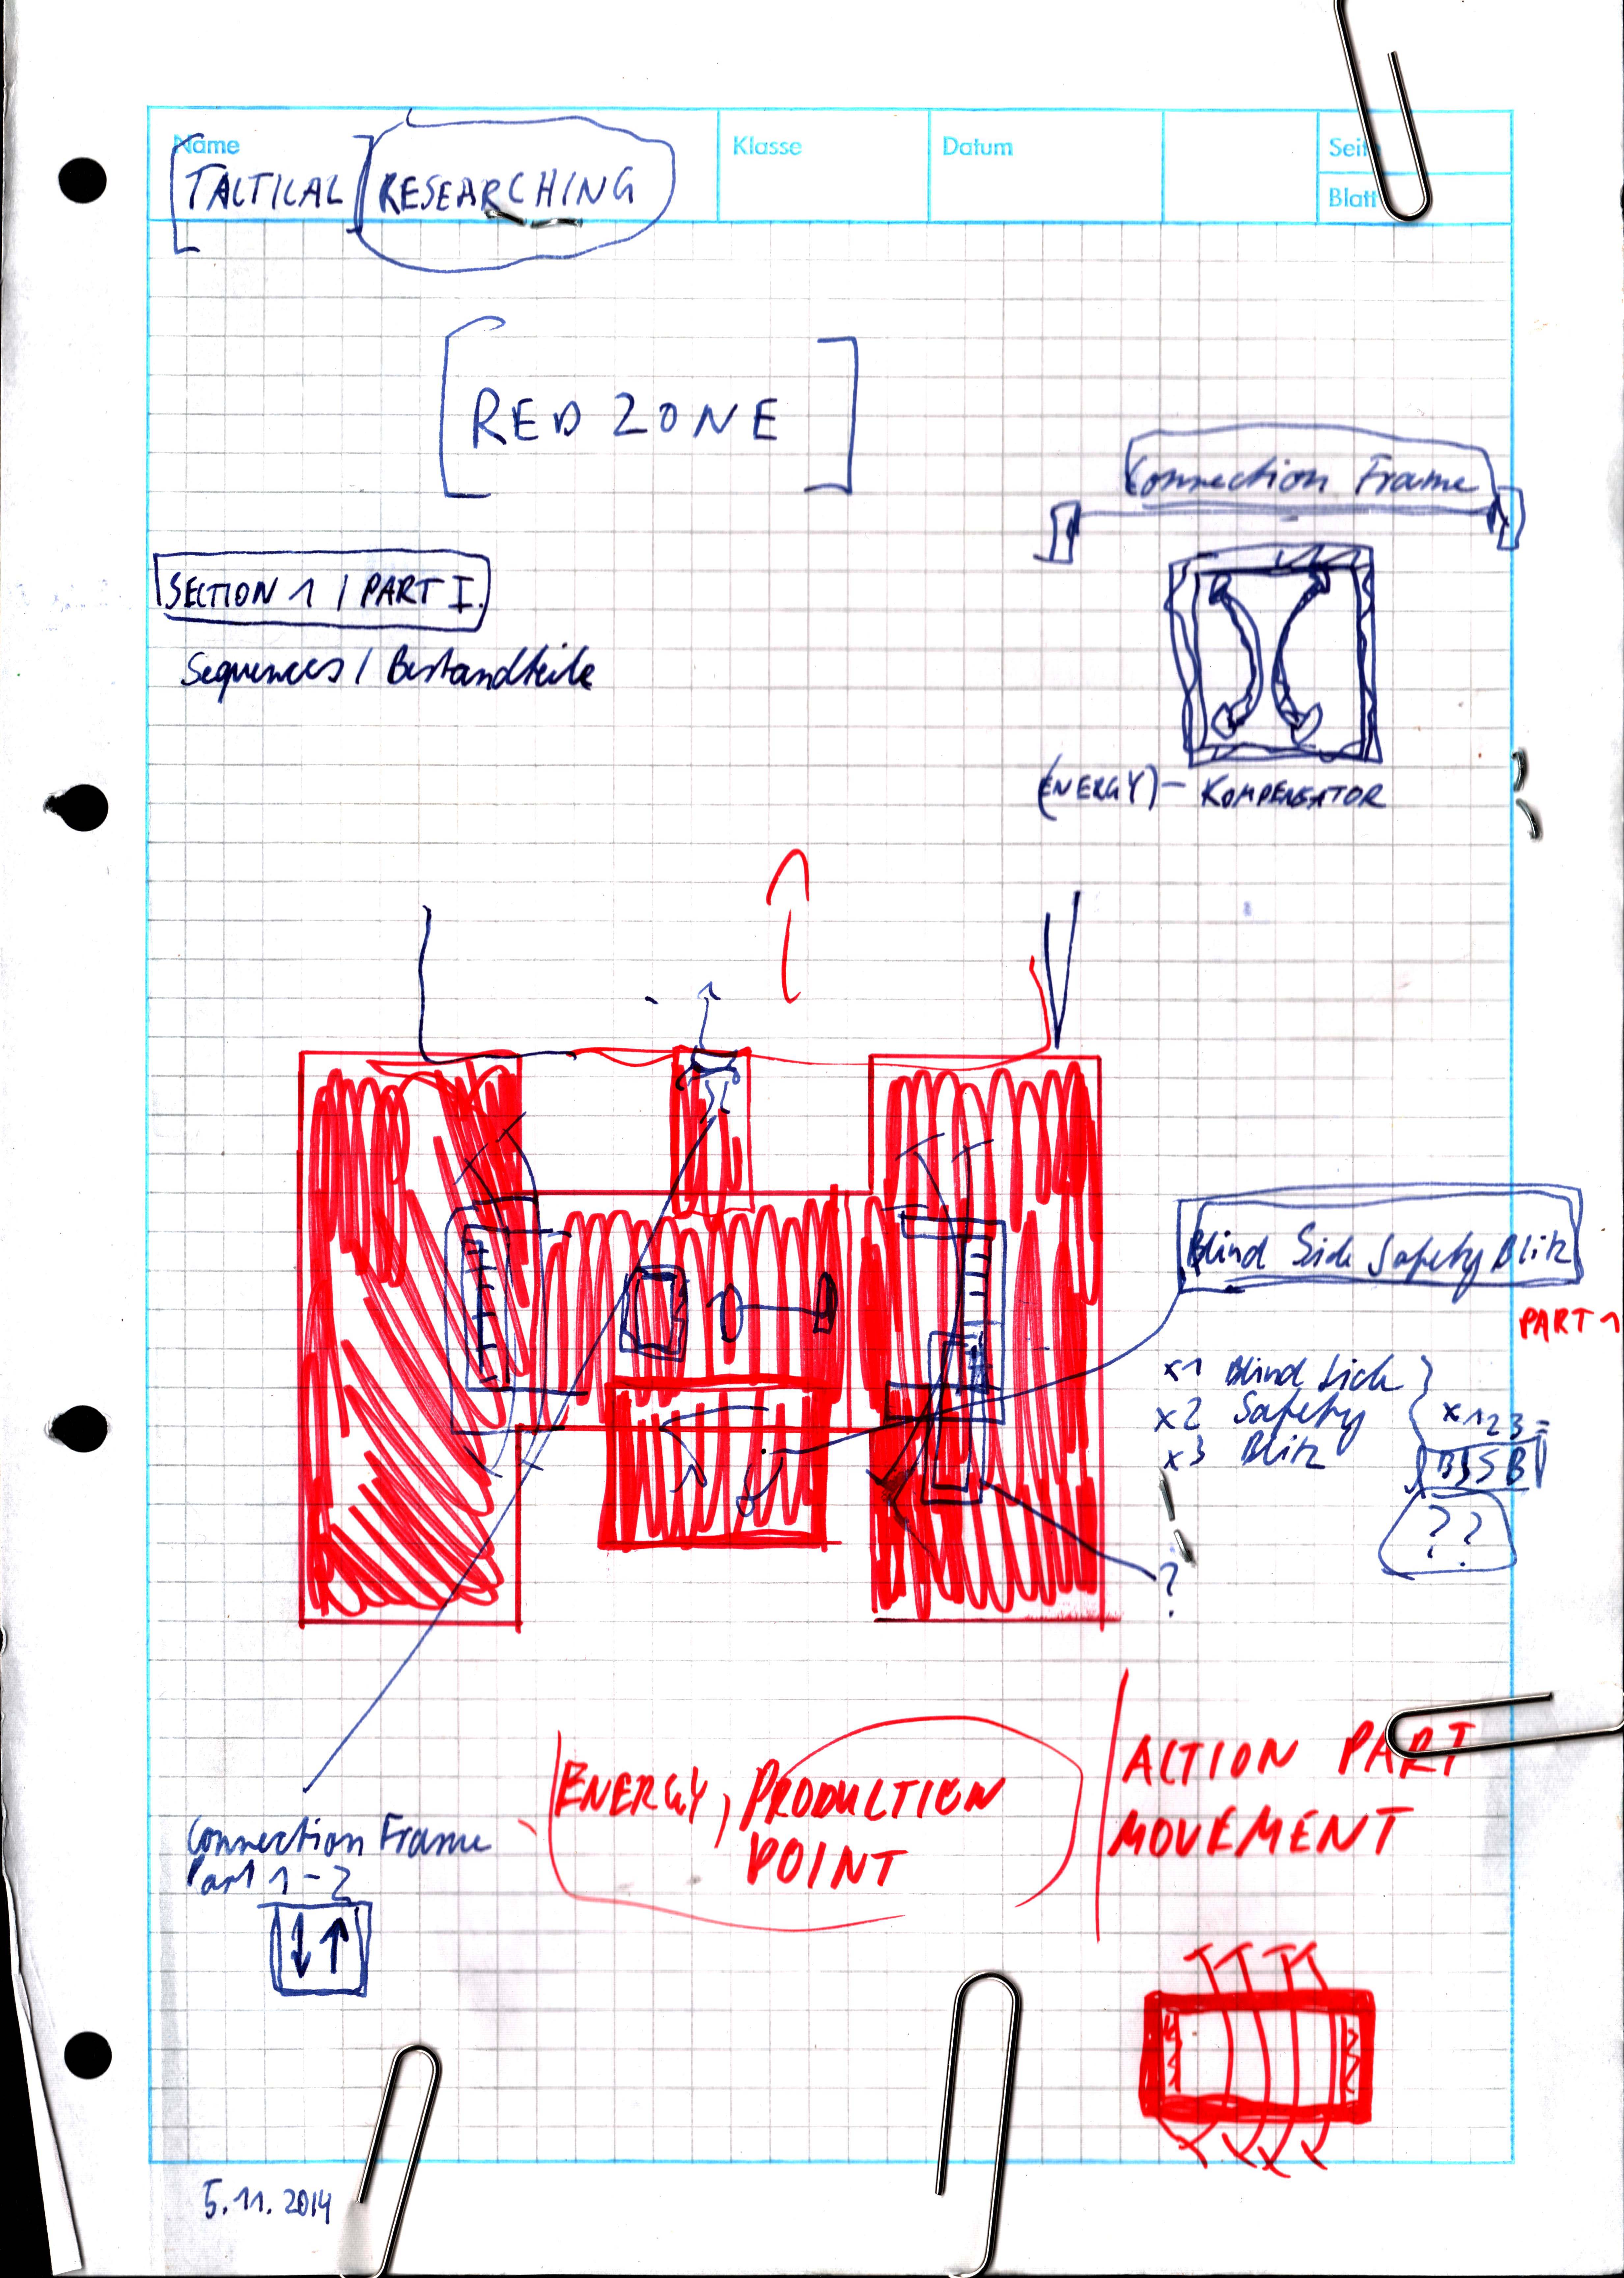 Name
Klasse
Datum
Seite
Blatt
TACTICAL RESEARCHING
RED ZONE
Connection Frame
SECTION 1 / PART I.
Sequences / Bestandteile
(ENERGY) - KOMPENSATOR
Blind Side Safety Blitz
PART 1
x1 Blind Side
x2 Safety
x3 Blitz
x123 =
BSSB
??
?
ENERGY, PRODUCTION
POINT
ACTION PART
MOVEMENT
Connection Frame
Part 1-2
5.11.2014